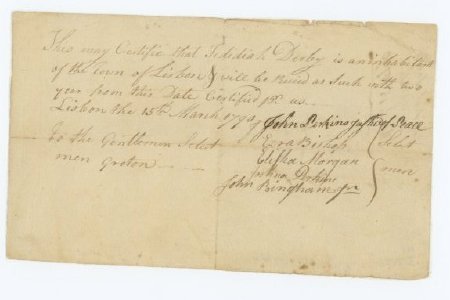 This may Certifie that Jedediah Derby is an inhabitant
of the town of Lisbon & will be as Such until two
year from this Date Certified pr. us
Lisbon the 15th March 1790
John Perkins Justice of Peace
Ezra Bishop
Elisha Morgan
Joshua Perkins
John Bingham Jur
Select
men
To the Gentlemen Select
men Groton